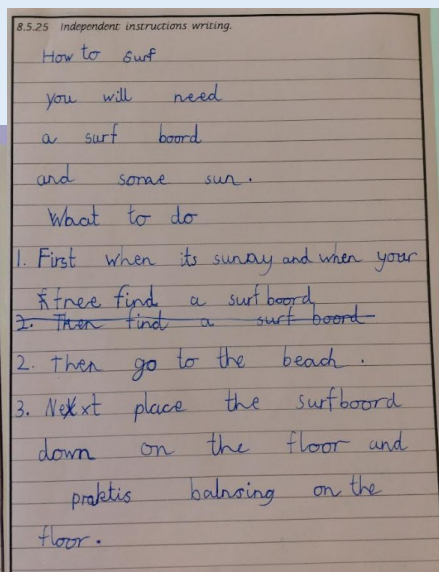 8.5.25 Independent instructions writing.
How to surf
you will need
a surf boord
and some sun.
What to do
1. First when its sunny and when your
free find a surfboord
2. Then find a surf boord
2. Then go to the beach.
3. Next place the surfboord
down on the floor and
praktis balnsing on the
floor.